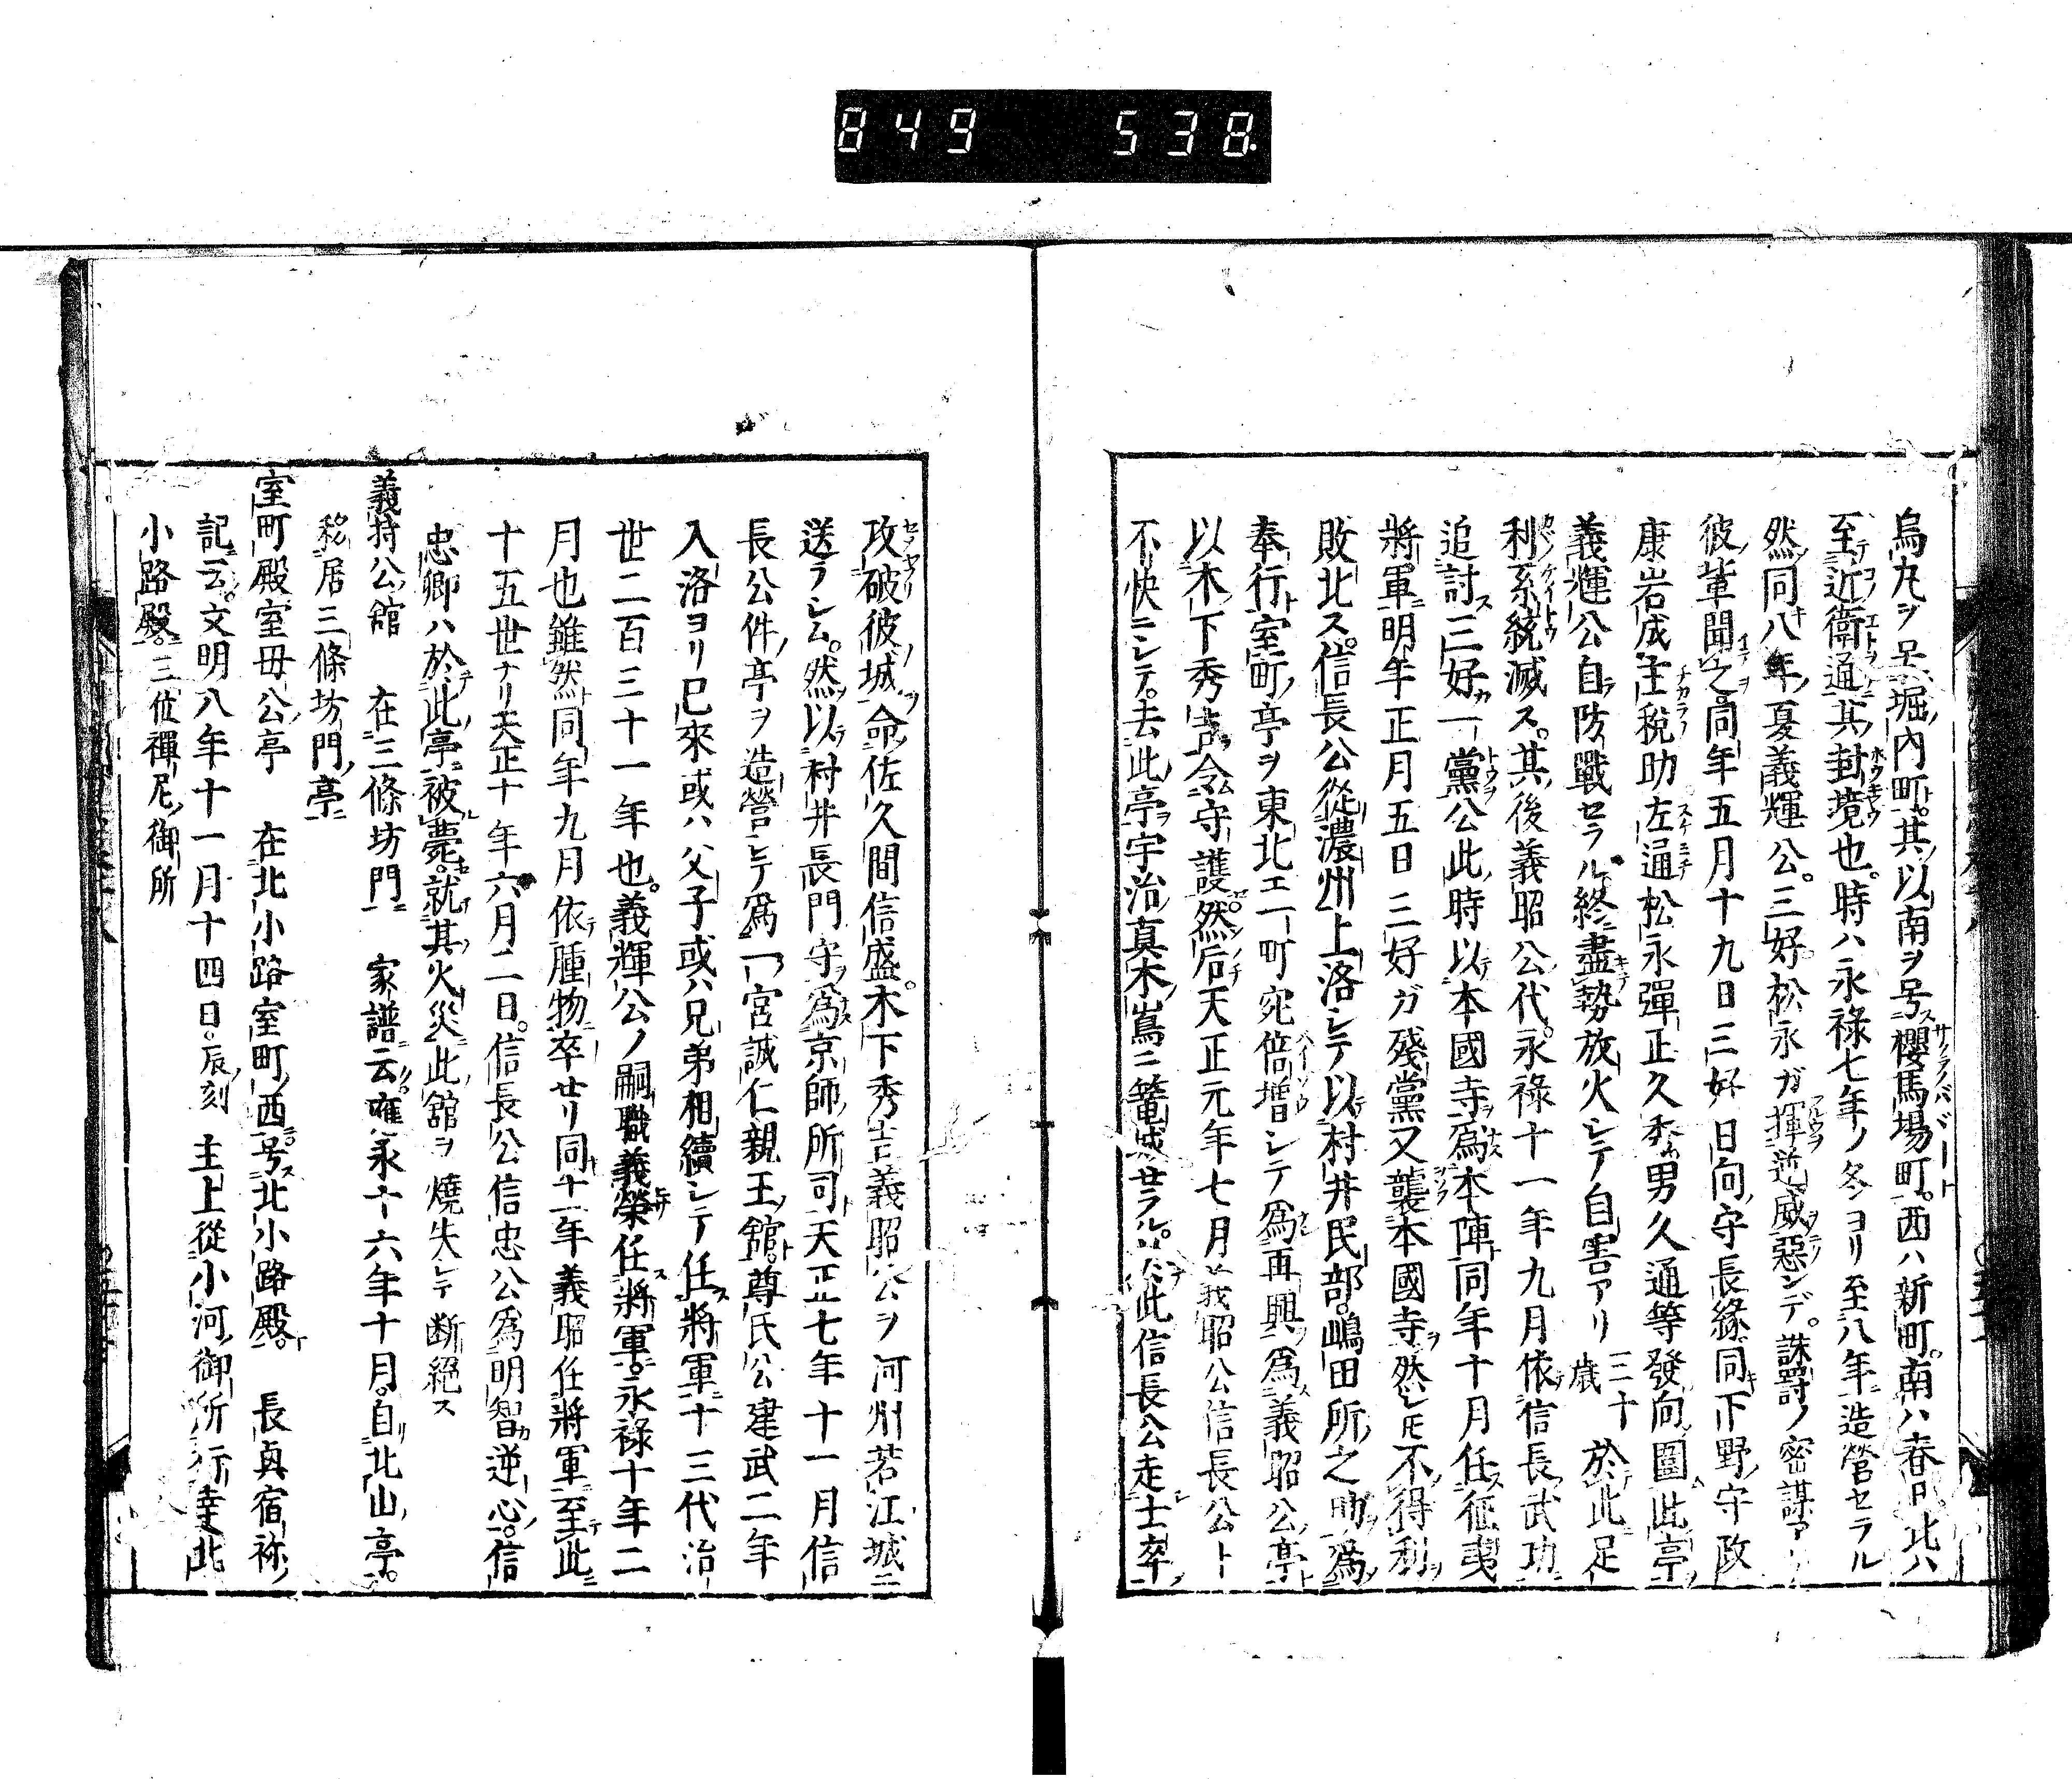 849 538
烏丸ヲ号堀内町其以南ヲ号櫻馬場町西ハ新町南ハ春日北ハ
至近衞通其封境也時ハ永祿七年ノ冬ヨリ至八年造營セラル
然同八年夏義輝公三好松永ガ揮逆威惡ンデ誅罸ノ密謀アリ
彼輩聞之同年五月十九日三好日向守長緣同下野守政
康岩成主税助左通松永彈正久秀男久通等發向圍此亭
義輝公自防戰セラル終盡勢放火シテ自害アリ三十歳於此足
利系統滅ス其後義昭公代永祿十一年九月依信長武功
追討三好一黨公此時以本國寺爲本陣同年十月任征夷
將軍明年正月五日三好ガ殘黨又襲本國寺然レモ不得利
敗北ス信長公從濃州上洛シテ以村井民部嶋田所之助爲
奉行室町亭ヲ東北エ一町宛倍増シテ爲再興爲義昭公亭
以木下秀吉令守護然后天正元年七月義昭公信長公ト
不快ニシテ去此亭宇治真木嶌ニ篭城セラル於此信長公走士卒
攻破彼城命佐久間信盛木下秀吉義昭公ヲ河州若江城ニ
送ラシム然以村井長門守爲京師所司天正七年十一月信
長公件亭ヲ造營シテ爲一宮誠仁親王舘尊氏公建武二年
入洛ヨリ已來或ハ父子或ハ兄弟相續シテ任將軍十三代治
世二百三十一年也義輝公ノ嗣職義榮任將軍永祿十年二
月也雖然同年九月依腫物卒せリ同十一年義昭任將軍至此
十五世ナリ天正十年六月二日信長公信忠公爲明智逆心信
忠卿ハ於此亭被薨就其火災此舘ヲ燒失シテ断絕ス
義持公舘 在三條坊門 家譜云應永十六年十月自北山亭
移居三條坊門亭
室町殿室毋公亭 在北小路室町西号北小路殿 長興宿祢
記云文明八年十一月十四日辰刻主上從小河御所行幸北
小路殿三位禪尼御所